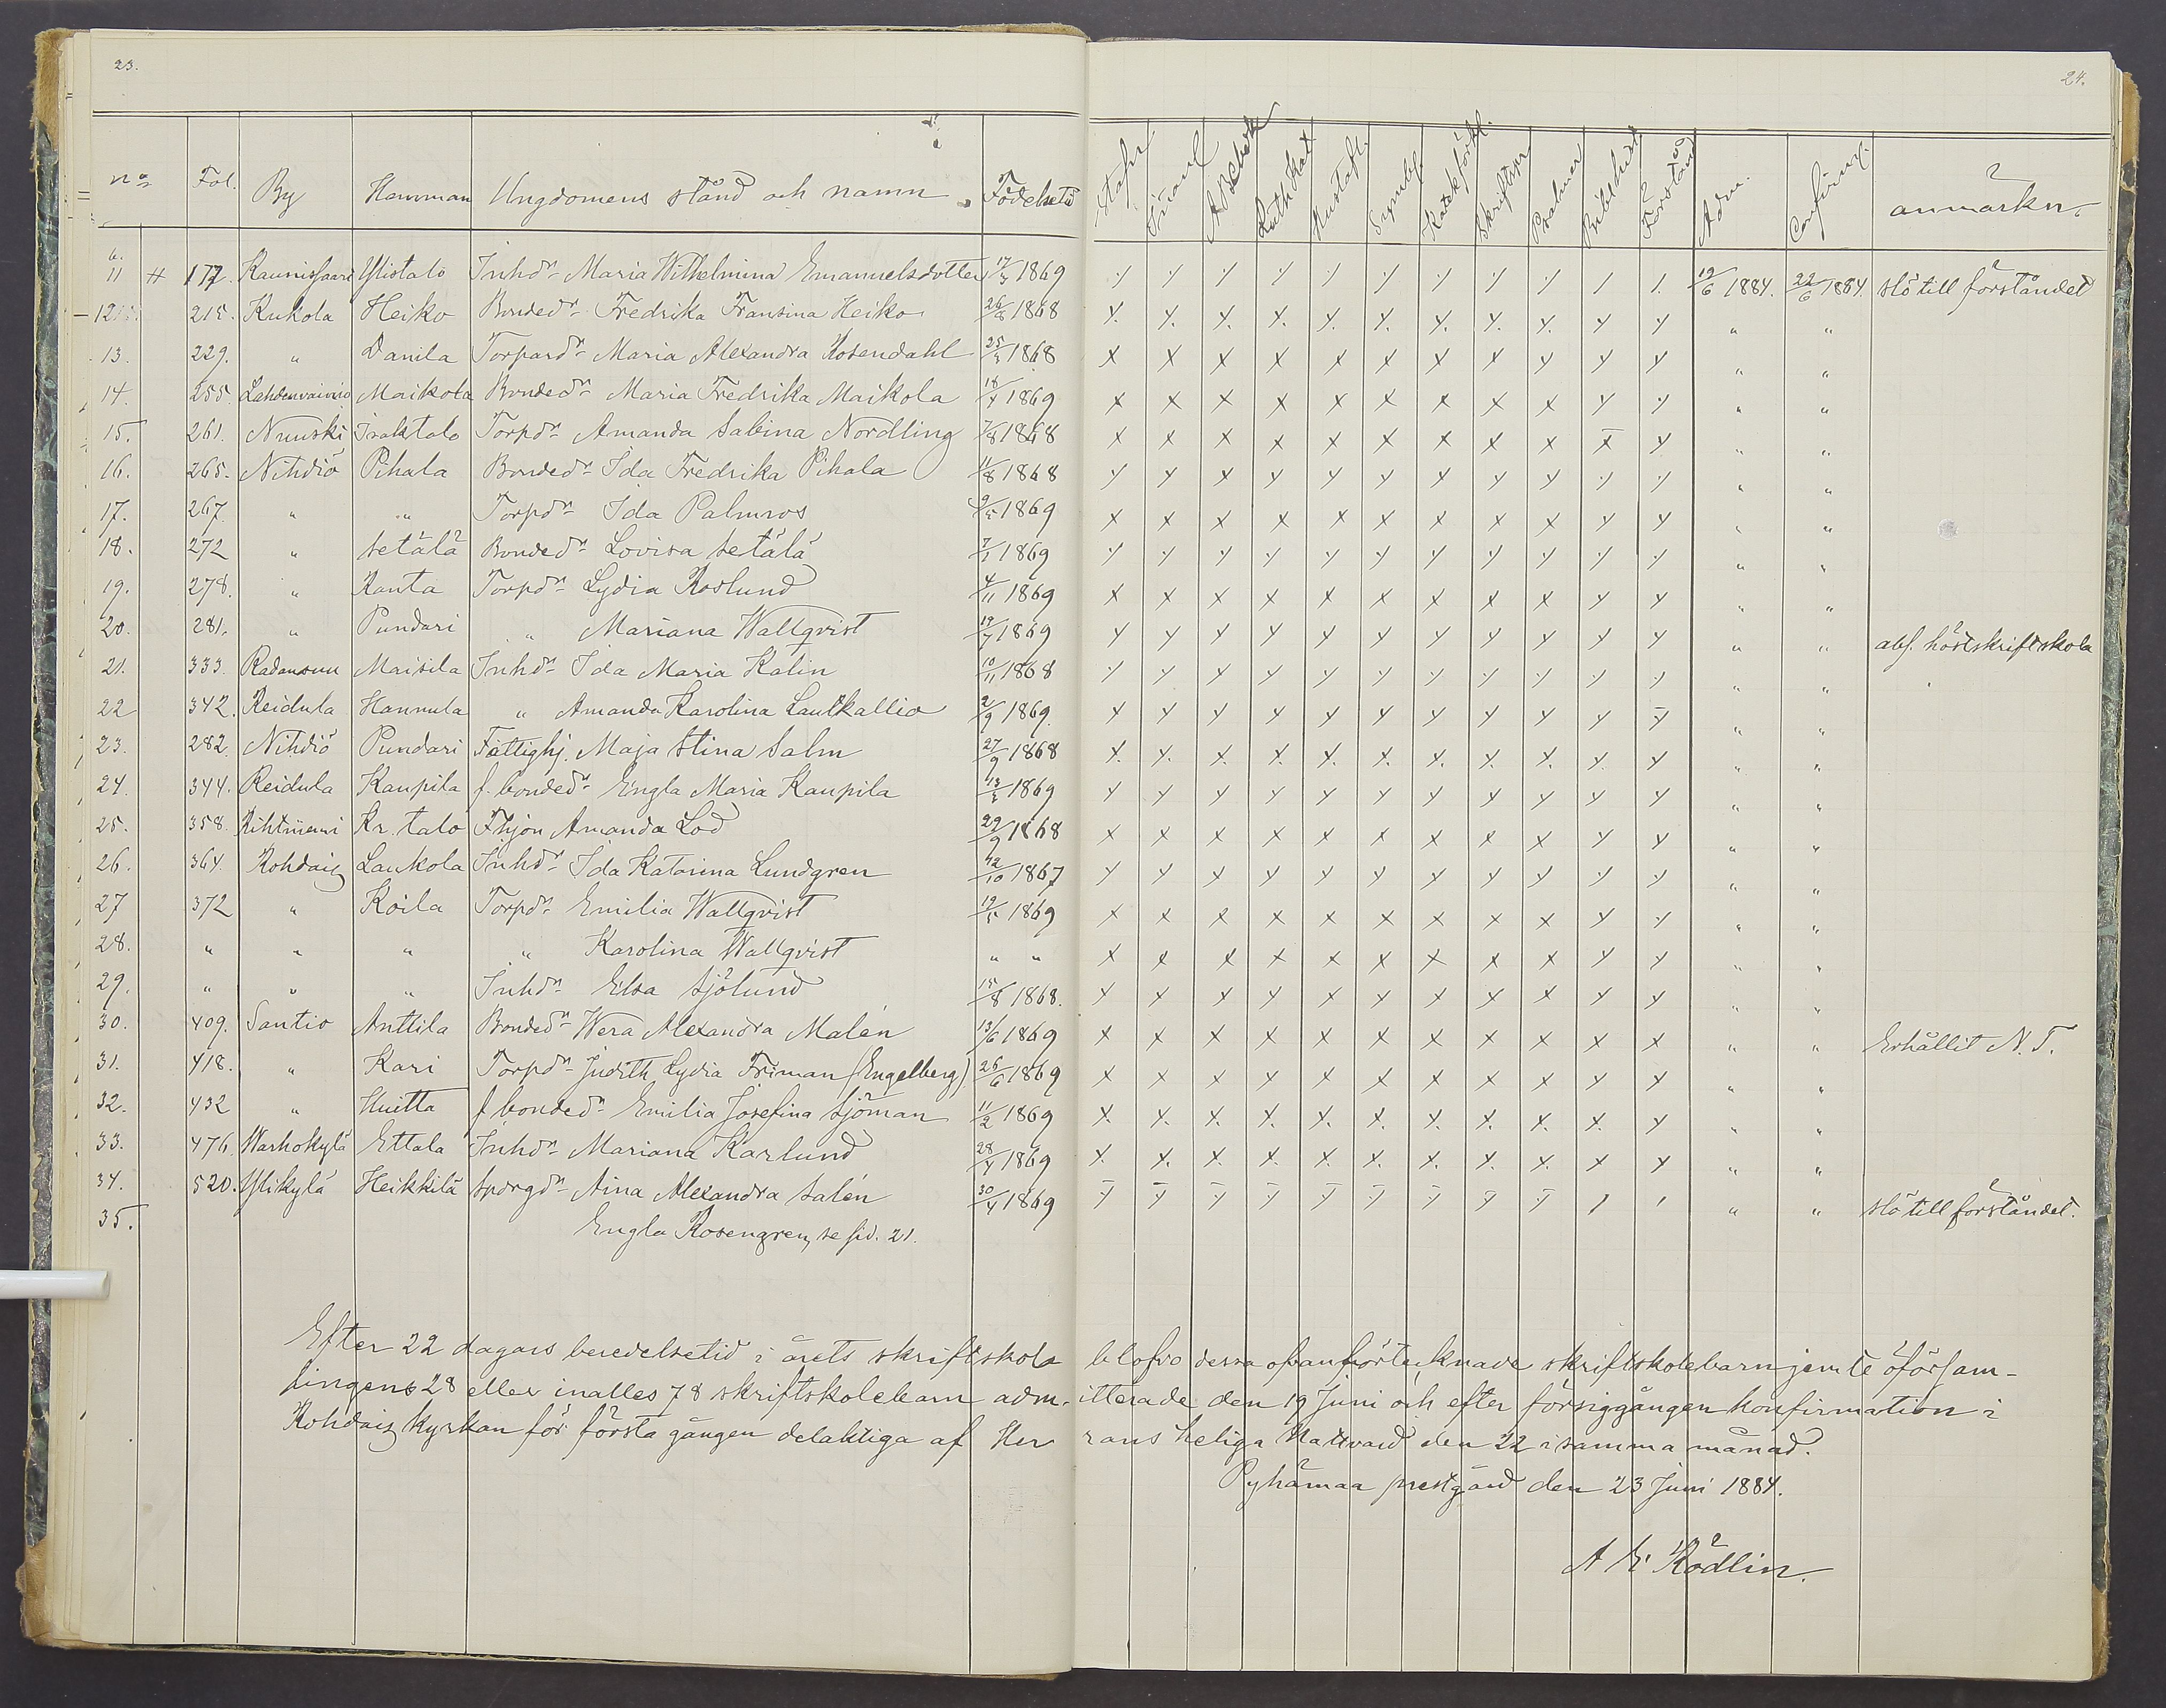 23.
24.
No Fol. By Hemman Ungdomens stånd och namn Födelsetid Stafn. Innanl. A B C bok Luth Kat. Hustafl. Symbol. Katek.förkl. Skriftspr. Psalmer Bibl. hist. Förstånd Adm. Confirm. anmärkn.
11 # 177. Kaunissaari Ylistalo Inhdr Maria Wilhelmina Emanuelsdotter 17/3 1869 19/6 1884. 22/6 1884. slö till förståndet
12 215. Kukola Heiko Bondedr Fredrika Fransina Heiko 26/8 1868 " "
13. 229. " Danila Torpardr Maria Alexandra Rosendahl 25/3 1868 " "
14. 255. Lahdenvainio Maikola Bondedr Maria Fredrika Maikola 18/4 1869 " "
15. 261. Nuuski Isaktalo Torpdr Amanda Sabina Nordling 7/8 1868 " "
16. 265. Nihdiö Pihala Bondedr Ida Fredrika Pihala 11/8 1868 " "
17. 267. " " Torpdr Ida Palmros 9/5 1869 " "
18. 272 " Setälä Bondedr Lovisa Setälä 7/1 1869 " "
19. 278. " Ranta Torpdr Lydia Roslund 4/11 1869 " "
20. 281. " Pundari " Mariana Wallqvist 19/7 1869 " " abs. höstskriftskola
21. 333. Radansuu Maisila Inhdr Ida Maria Kalin 10/11 1868 " "
22 342. Reidula Hannula " Amanda Karolina Lautkallio 2/9 1869. " "
23. 282. Nihdiö Pundari Fattighj. Maja Stina Salm 27/9 1868 " "
24. 344. Reidula Kaupila f. bondedr Engla Maria Kaupila 13/2 1869 " "
25. 358. Rihtniemi Kr. talo Fhjon Amanda Lod 29/9 1868 " "
26. 364. Rohdais Laukola Inhdr Ida Katarina Lundgren 12/10 1867 " "
27 372 " Koila Torpdr Emilia Wallqvist 19/5 1869 " "
28. " " " " Karolina Wallqvist " " " "
29. " " " Inhdr Elsa Sjölund 15/8 1868. " "
30. 409. Santio Anttila Bondedr Wera Alexandra Malén 13/6 1869 " " Erhållit N. T.
31. 418. " Kari Torpdr Judith Lydia Friman (Engelberg) 26/6 1869 " "
32. 432 " Huitta f bondedr Emilia Josefina Sjöman 11/2 1869 " "
33. 476. Warhokylä Ettala Inhdr Mariana Karlund 28/4 1869 " "
34. 520. Ylikylä Heikkilä Spörgdr Aina Alexandra Salén 30/4 1869 " " slö till förståndet.
35. Engla Rosengren, se sid. 21.
Efter 22 dagars beredelsetid i årets skriftskola blefvo dessa ofvanförtecknade skriftskolebarn jemte öförsam-
lingens 28 eller inalles 78 skriftskolebarn adm- itterade den 19 Juni och efter försiggången konfirmation i
Rohdais kyrkan för första gången delaktiga af Her rans heliga Nattvard den 22 i samma månad.
Pyhämaa prestgård den 23 Juni 1884.
A E Rödlin.